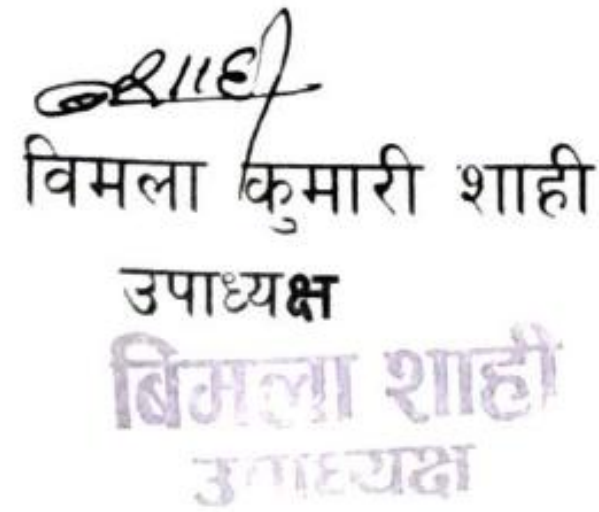 शाही
विमला कुमारी शाही
उपाध्यक्ष
बिमला शाही
उपाध्यक्ष